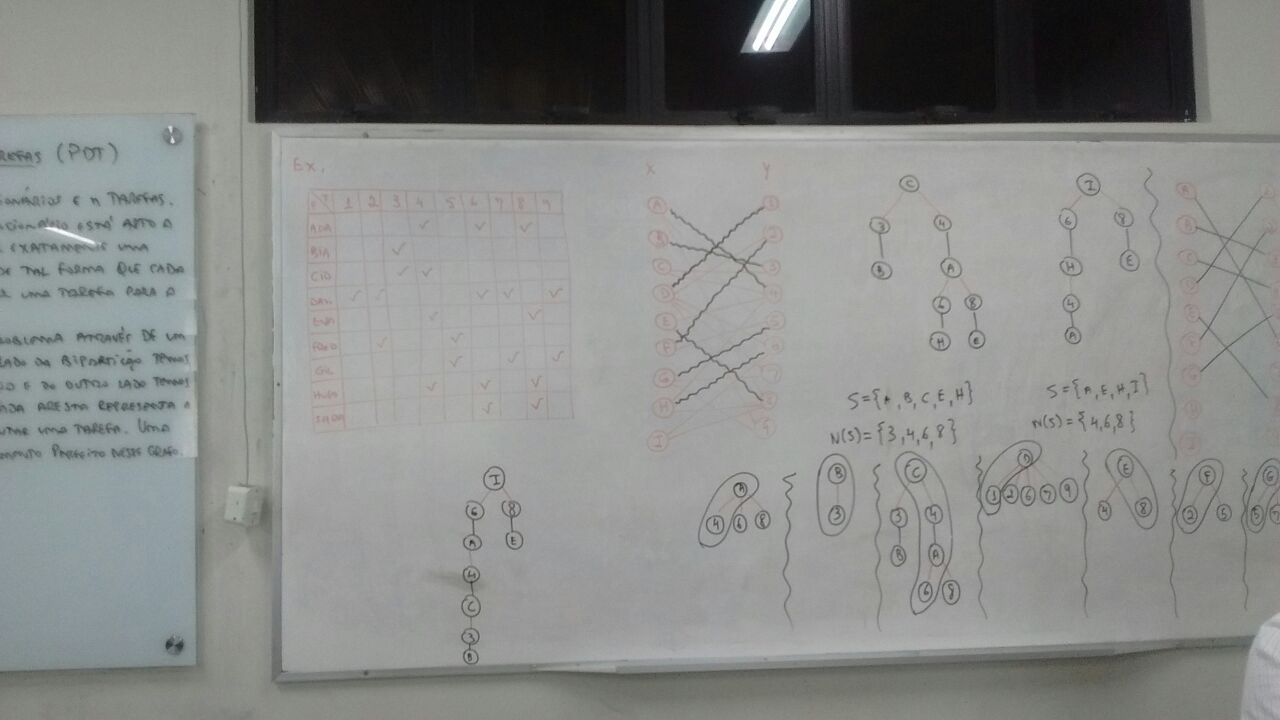 REFAS (PDT)
IONÁRIOS E N TAREFAS.
ESTÁ APTO A
EXATAMENTE UMA
DE TAL FORMA QUE CADA
UMA TAREFA PARA A
ROBLEMA ATRAVÉS DE UM
LADO DA BIPARTIÇÃO TEMOS
E DO OUTRO LADO TEMOS
ADA ARESTA REPRESENTA A
UTAR UMA TAREFA. UMA
PERFEITO NESSE GRAFO.
Ex.
1 2 3 4 5 6 7 8 9
ADA ✓ ✓ ✓
BIA ✓
CID ✓ ✓
DAN ✓ ✓ ✓ ✓ ✓
EVA ✓ ✓
FRED ✓ ✓
GIL ✓ ✓ ✓
HUGO ✓ ✓ ✓
✓ ✓
X Y
A 1
B 2
C 3
D 4
E 5
F 6
G 7
H 8
I 9
C
3 4
B A
6 8
H E
S={A,B,C,E,H}
N(S)={3,4,6,8}
I
6 8
H E
4
A
S={A,E,H,I}
N(S)={4,6,8}
A
B
C
D
E
F
G
H
I
I
6 8
A E
4
C
3
B
A
4 6 8
B
3
C
3 4
B A
6 8
D
1 2 6 7 9
E
4 8
F
2 5
G
5 7